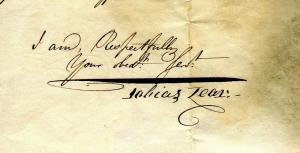 I am, Respectfully
Your obed.t Serv.t
Tobias Lear.